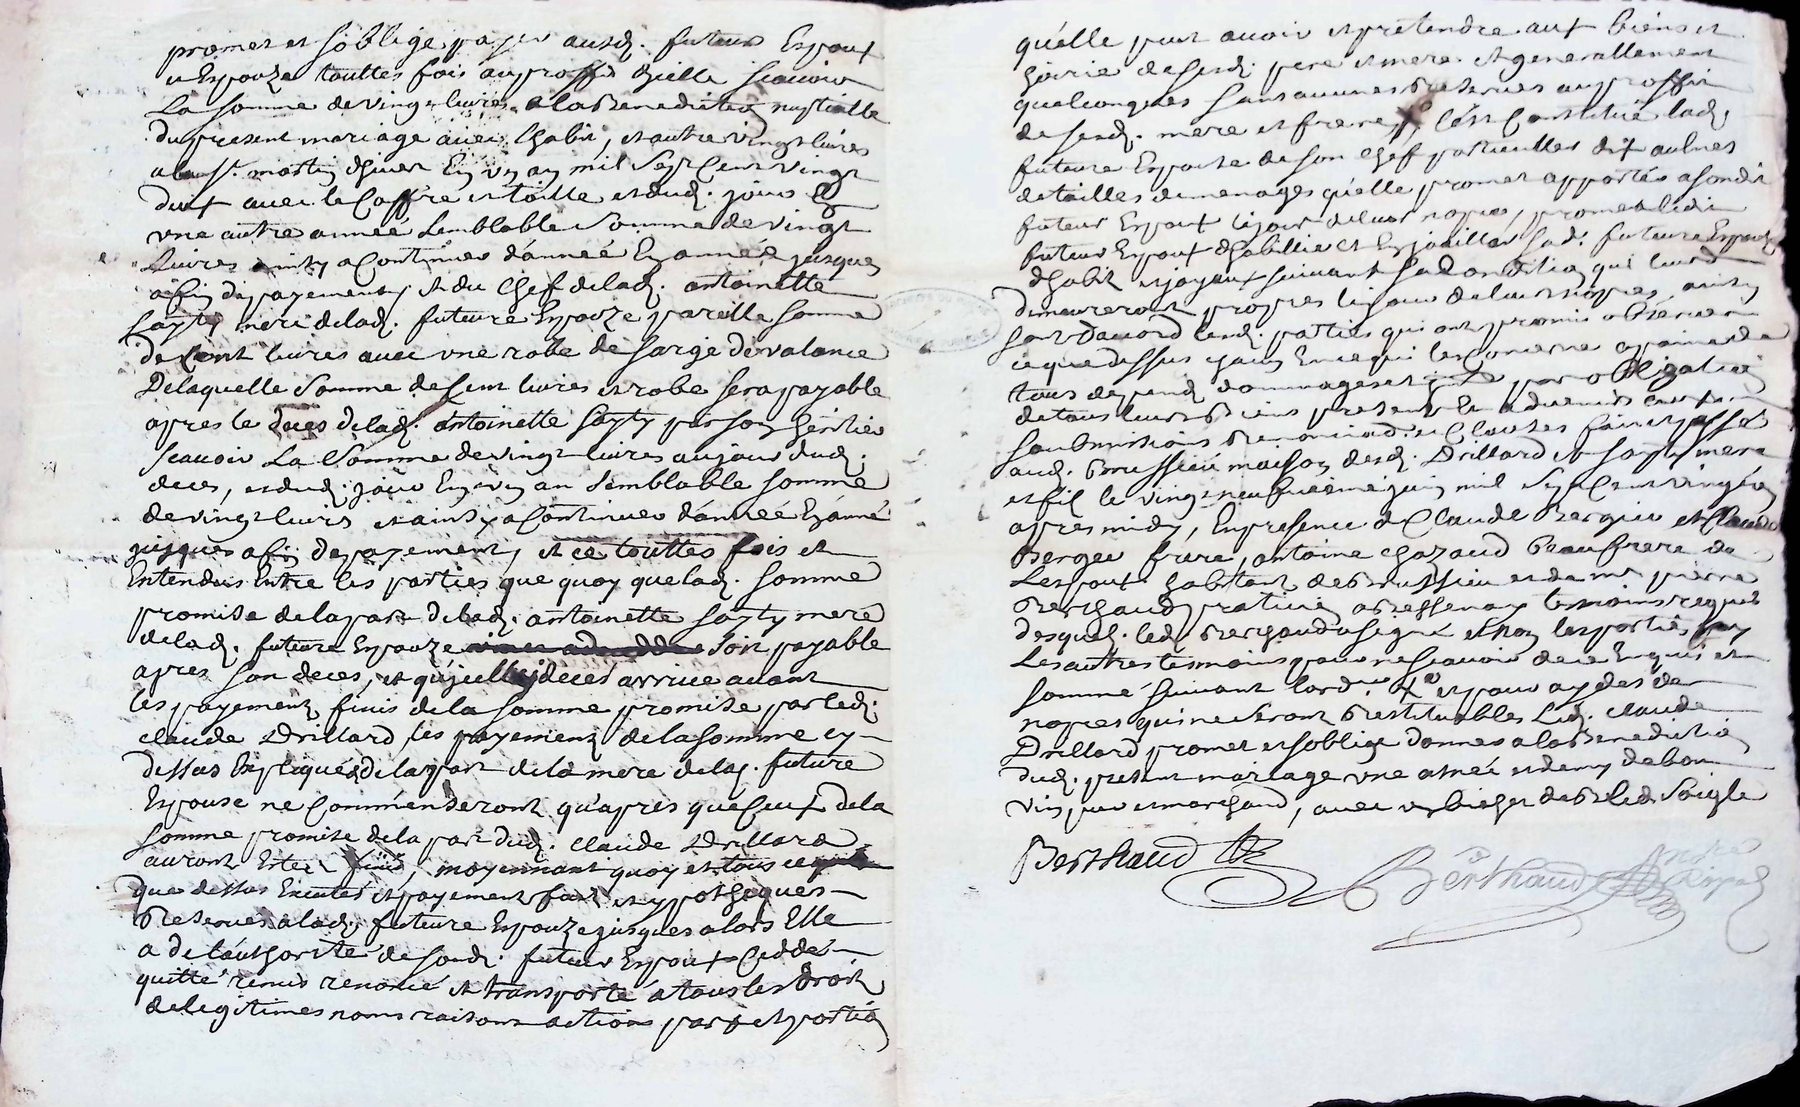 promet et s'oblige payer ausd. futeurs Espoux
et Espouze touttes fois au proffit dicelle scauoir
La somme de vingt liures a la benediction nuptialle
du present mariage auec lhabit, et autre vingt liures
a la st. martin dhiuer En vn an mil sept Cent vingt
auec le Coffre et toille et dud. jour En
vne autre année semblable somme de vingt
Liures ainsy a Continuer d'année En année jusques
a fin de payement, et du Chef de lad. antoinette
sayty mere de lad. futeure Espouze pareille somme
de Cent liures auec vne robe de sarge de valance
De laquelle somme de Cent liures et robe sera payable
apres le deces de lad. antoinette sayty par son heritier
scauoir La somme de vingt liures au jour dud.
deces, et dud. jour En vn an semblable somme
de vingt liures et ainsy a Continuer d'année En année
jusques a fin de payement, et ce touttes fois et
Entendus Entre les parties que quoy que lad. somme
promise de la part de lad. antoinette sayty mere
de lad. futeure Espouze soit payable
apres son deces, et qu'jcelluy deces arriue auant
les payements finis de la somme promise par led.
claude Drillard, les payements de la somme cy
dessus Expliquée de la part de la mere de lad. future
Espouse ne Commenseront qu'apres que Ceux de la
somme promise de la part dud. claude Drillard
auront Estez finis, moyennant quoy et tous ce
que dessus Executés et payement fait et ypotheques
Reserués a lad. futeure Espouze jusques alors Elle
a de l'authorité de sond. futeur Espoux Ceddé
quitté remis renoncé et transporté a tous les droits
de legitimes noms raisons actions part et portion
qu'elle peut auoir et pretendre aux biens et
hoirie de sesd. pere et mere et generallement
quelconques sans aucunes Reserues au proffit
de sesd. mere et frere, s'est Constitué lad.
futeure Espouse de son Cheff particullier dix aulnes
de toilles de menages qu'elle promet apporter a sondit
futeur Espoux le jour de leur nopces, promet ledit
futeur Espoux d'habillier et Enjouiller sad. futeure Espouze
d'habit et joyaux suiuant sa Condition qui luy
demeureront propres le jour de leurs nopces, ainsy
sont d'acord lesd. parties qui ont promis obseruer
ce que dessus chacun En ce qui les Concerne a peine de
tous despends dommages et par obligation
de tous leurs biens presents et aduenirs
soubmissions Renonciad. et Clauses fait et passé
aud. Brussieu maison desd. Drillard et sayty mere
et fils le vingt neufuieme juin mil sept Cent vingt
apres midy, En presence de Claude Bergier et Claude
Berger frere, antoine chazaud Beaufrere de
Lespoux habitant de Brussieu et de mr. pierre
Berthaud praticien a Bessenay tesmoins requis
desquels led. Berthaud a signé et non les parties ny
Les autres tesmoins pour ne scauoir de ce Enquis et
sommé suiuant lord. et pour aydes de
nopces qui ne seront Restituables Led. claude
Drillard promet et s'oblige donner a la Benediction
dud. present mariage vne anée et demy de bon
vin pur et marchand, auec vn bichet de Bled Soigle
Berthaud
Berthaud